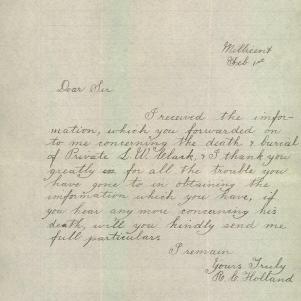 Millicent
Feb 1st
Dear Sir
I received the infor-
mation, which you forwarded on
to me concerning the death & burial
of Private L. W. Clark, & I thank you
greatly for all the trouble you
have gone to in obtaining the
information which you have, if
you hear any more concerning his
death, will you kindly send me
full particulars
I remain
Yours Truly
R. C. Holland